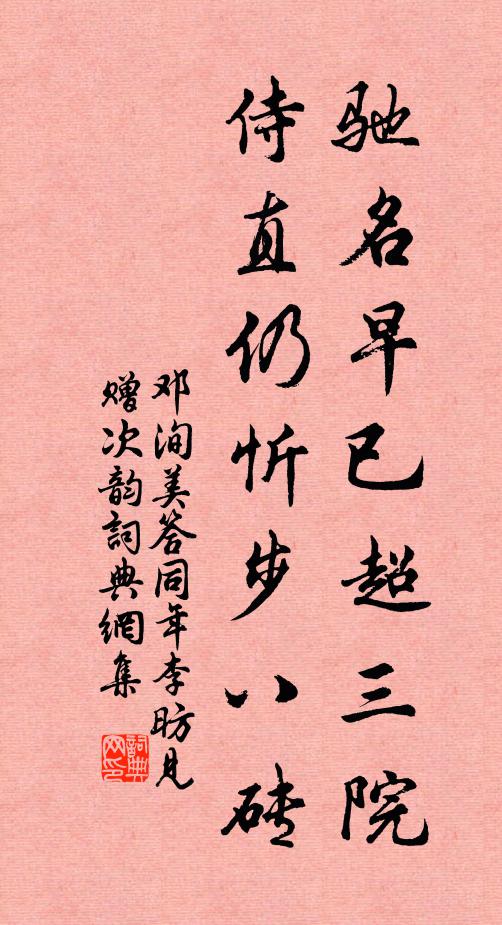 驰名早已超三院
侍直仍忻步八砖
邓洵美答同年李昉见
赠次韵词典網集
詞典
网印